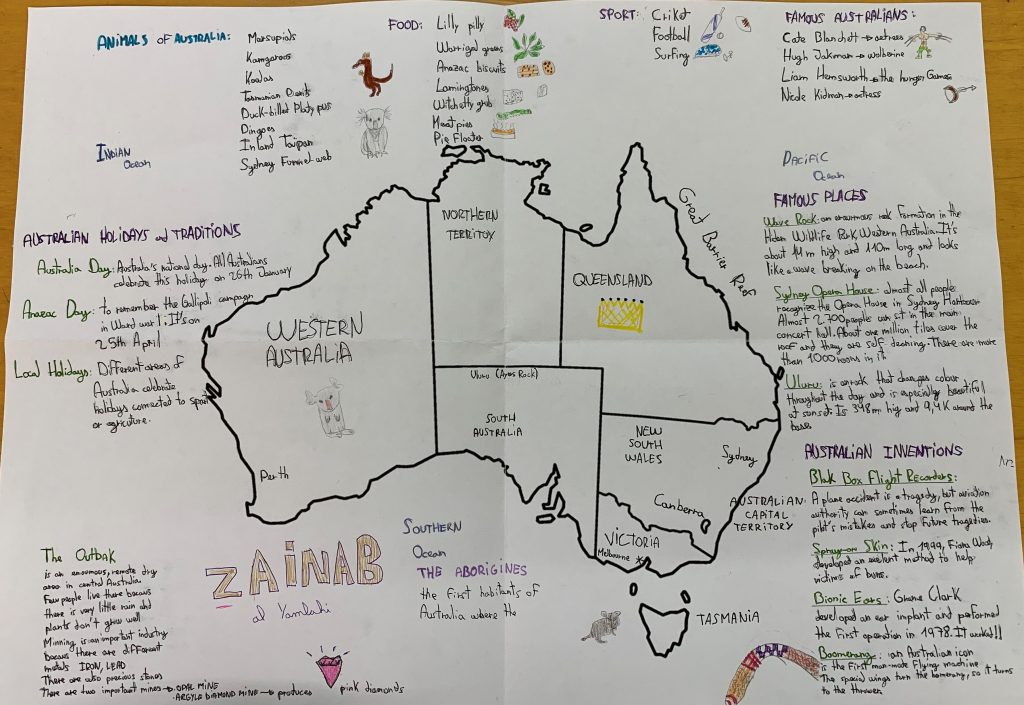 ANIMALS OF AUSTRALIA:
Marsupials
Kamgaroos
Koalas
Tasmanian Devils
Duck-billet Platypus
Dingoes
Inland Taipan
Sydney Funnel web
FOOD:
Lilly pilly
Warrigal greens
Anazac biscuits
Lamingtones
Witchetty grub
Meat pies
Pie Floater
SPORT:
Criket
Football
Surfing
FAMOUS AUSTRALIANS:
Cate Blanchett → actress
Hugh Jakman → wolberine
Liam Hemsworth → the hunger Games
Nicole Kidman → actress
INDIAN
OCEAN
PACIFIC
OCEAN
AUSTRALIAN HOLIDAYS and TRADITIONS
Australia Day: Australia's national day. All Australians
celebrate this holiday on 26th January
Anazac Day: To remember the Gallipoli campaign
in Word war I. It's on
25th April
Local Holidays: Different areas of
Australia celebrate
holidays connected to sport
or agriculture.
WESTERN
AUSTRALIA
Perth
NORTHERN
TERRITOY
QUEENSLAND
Great Barrier Reef
Uluru (Ayres Rock)
SOUTH
AUSTRALIA
NEW
SOUTH
WALES
Sydney
Canberra
AUSTRALIAN
CAPITAL
TERRITORY
VICTORIA
Melbourne
TASMANIA
FAMOUS PLACES
Wave Rock: an enourmous rock formation in the
Hiden Wildlife Park, Western Australia. It's
about 14m high and 110m long and looks
like a wave breaking on the beach.
Sydney Opera House: almost all people
recognize the Opera House in Sydney Harbour
Almost 2.700 people can sit in the main
concert hall. About one million tiles cover the
roof and they are self cleaning. There are more
than 1000 rooms in it
Uluru: is an rock that changes colour
throughout the day and is especially beautiful
at sunset. Is 348m hig and 9,4K around the
base
AUSTRALIAN INVENTIONS
Blak Box Flight Recorders:
A plane accident is a tragedy, but aviation
authority can sometimes learn from the
pilot's mistakes and stop future tragedies.
Spray-on Skin: In 1999, Fiona Wood,
developed an exellent method to help
victims of burns.
Bionic Ears: Grame Clark
developed an ear implant and performed
the first operation in 1978. It worked!!
Boomerang: an Australian icon
is the First man-made flying machine
The special wings turn the boomerang, so it turns
to the thrower
SOUTHERN
OCEAN
THE ABORIGINES
the first habitants of
Australia where the
ZAINAB
al Yamlahi
The Outbak
is an enourmous, remote dry
area in central Australia.
Few people live there becaus
there is very little rain and
plants don't grow well
Minning is an important industry
becaus there are different
metals IRON, LEAD
There are also precious stones
There are two important mines → OPAL MINE
· ARGYLE DIAMOND MINE → produces pink diamonds